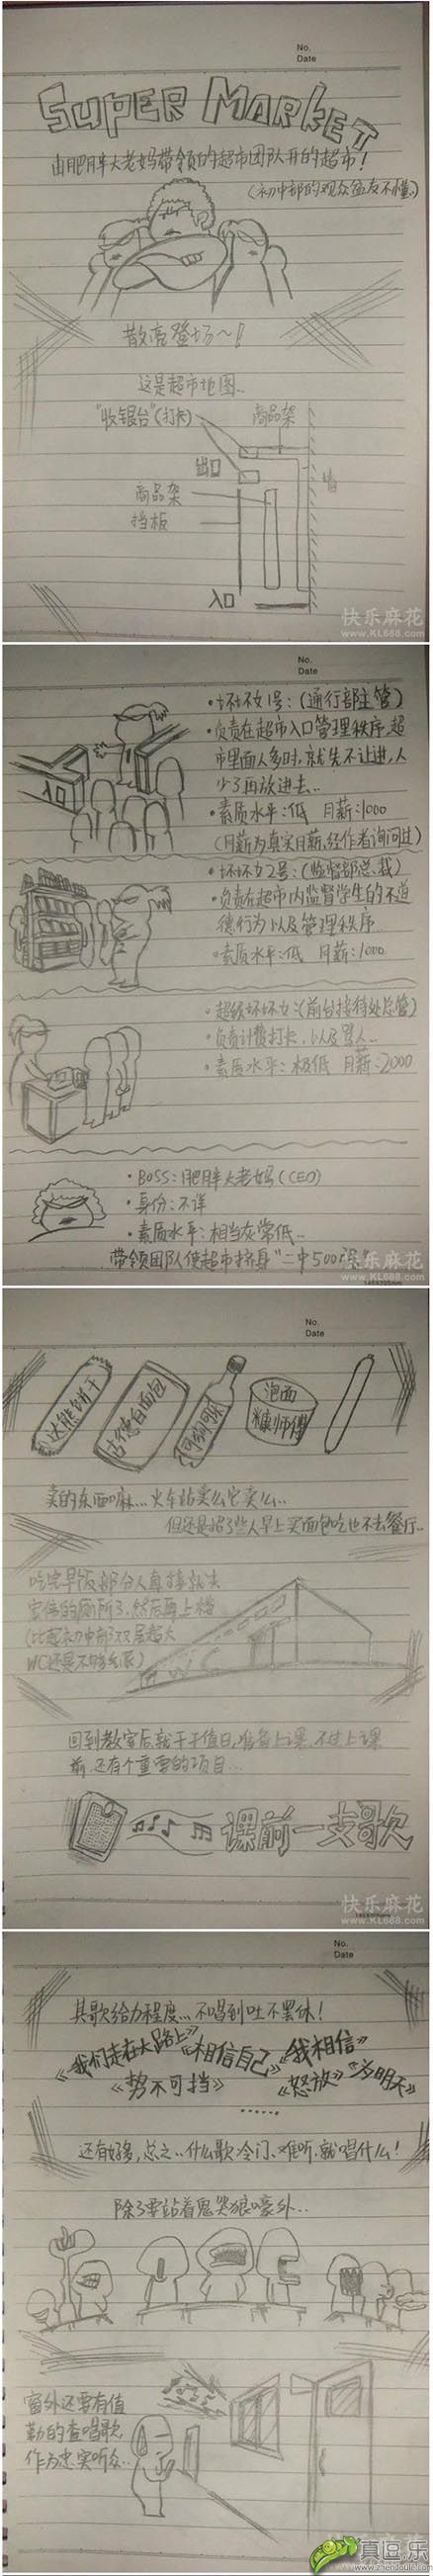 No.
Date
SUPER MARKET
由肥胖大老妈带领的超市团队开的超市!
(初中部的观众盆友不懂。)
散亮登场~!
这是超市地图..
"收银台"(打卡)
商品架
出口
商品架
挡板
入口
快乐麻花
www.KL688.com
No.
Date
·坏坏女1号:(通行部主管)
·负责在超市入口管理秩序,超
市里面人多时,就先不让进,人
少了再放进去..
·素质水平:低 月薪:1000
(月薪为真实月薪,经作者询问过)
入口
·坏坏女2号:(监督部总裁)
·负责在超市内监督学生的不道
德行为以及管理秩序
·素质水平:低 月薪:1000
·超级坏坏女:(前台接待处总管)
·负责计费打卡,以及骂人..
·素质水平:极低 月薪:2000
·BOSS:肥胖大老妈(CEO)
·身份:不详
·素质水平:相当灰常低..
带领团队使超市挤身"二中500强"
快乐麻花
www.KL688.com
No.
Date
达能饼干
古德白面包
泡面
糠师傅
卖的东西嘛...火车站卖么它卖么..
但还是招了些人早上买面包吃也不去餐厅..
吃完早饭部分人直接就去
WC还是不够给派)
回到教室后就干干值日,准备上课,不过上课
前,还有个重要的项目...
课前一支歌
快乐麻花
www.KL688.com
No.
Date
其歌给力程度...不唱到吐不罢休!
《我们走在大路上》《相信自己》《我相信》
《势不可挡》《怒放》《为明天》
......
还有好多,总之..什么歌冷门、难听,就唱什么!
除了要站着鬼哭狼嚎外...
窗外还要有值
勤的查唱歌
作为忠实听众..
真逗乐
www.zhendoule.com